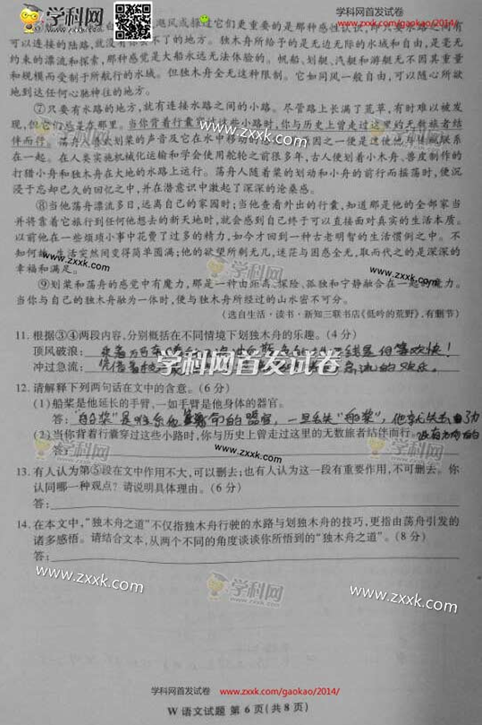 学科网首发试卷
www.zxxk.com/gaokao/2014/
可以连接的陆路,就没有你去不了的地方。独木舟所给予的是无边无际的水域和自由,是毫无
约束的漂流和探索,那种感觉是大船永远无法体验的。帆船、划艇、汽艇和游艇无不因其重量
和规模而受制于所航行的水域。但独木舟全无这种限制。它如同风一般自由,可以随心所欲
地到达任何心驰神往的地方。
⑦只要有水路的地方,就有连接水路之间的小路。尽管路上长满了荒草,有时难以被发
现,但它们总是在那里。当你背着行囊穿过这些小路时,你与历史上曾走过这里的无数旅者结
伴而行。
在一起。在人类实施机械化运输和学会使用舵轮之前很多年,古人便划着小木舟、兽皮制作的
打猎小舟和独木舟在大地的水路上运行。荡舟人随着桨的划动和小舟的前行而摇荡时,便沉
浸于忘却已久的回忆之中,并在潜意识中激起了深深的沧桑感。
⑧当他荡舟漂流多日,远离自己的家园时;当他查看外出的行囊,知道那是他的全部家当
并将靠着它旅行到任何他想去的新天地时,就会感到自己终于可以直接面对真实的生活本质。
以前他在一些烦琐小事中花费了过多的精力,如今才回到一种古老明智的生活惯例之中。不
知何故,生活突然间变得简单圆满;他的欲望所剩无几,迷茫与困惑全无,取而代之的是深深的
幸福和满足。
⑨划桨和荡舟的感觉中有魔力,那是一种由距离、探险、孤独和宁静融合在一起的魔力。
当你与自己的独木舟融为一体时,便与独木舟所经过的山水密不可分。
(选自生活·读书·新知三联书店《低吟的荒野》,有删节)
11. 根据③④两段内容,分别概括在不同情境下划独木舟的乐趣。(4 分)
顶风破浪:
冲过急流:
学科网首发试卷
12. 请解释下列两句话在文中的含意。(6 分)
(1)船桨是他延长的手臂,一如手臂是他身体的器官。
答:
(2)当你背着行囊穿过这些小路时,你与历史上曾走过这里的无数旅者结伴而行。
答:
13. 有人认为第⑤段在文中作用不大,可以删去;也有人认为这一段有重要作用,不可删去。你
认同哪一种观点?请说明具体理由。(6 分)
14. 在本文中,“独木舟之道”不仅指独木舟行驶的水路与划独木舟的技巧,更指由荡舟引发的
诸多感悟。请结合文本,从两个不同的角度谈谈你所悟到的“独木舟之道”。(8 分)
答:
www.zxxk.com
学科网
www.zxxk.com
学科网首发试卷
www.zxxk.com/gaokao/2014/
W 语文试题 第 6 页(共 8 页)